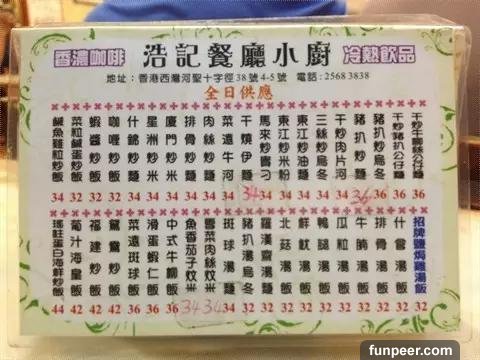 香濃咖啡
浩記餐廳小廚
冷熱飲品
地址：香港西灣河聖十字徑38號4-5號 電話：2568 3838
全日供應
鹹魚雞粒炒飯
蝦醬炒飯
咖喱炒飯
什錦炒麵
星洲炒米
廈門炒米
排骨炒麵
肉絲炒麵
菜遠牛河
干燒伊麵
馬來炒貴刁
東江炒米粉
東江炒油麵
三絲炒烏冬
干炒肉片河
豬扒炒麵
豬扒炒烏冬
干炒豬扒公仔麵
干炒牛脷絲公仔麵
34 32 32 34 34 34 34 34 34 34 34 34 34 34 34 36 36 36 36
瑤柱蛋白海鮮炒飯
葡汁海皇飯
福建炒飯
鴛鴦炒飯
菜遠斑球飯
滑蛋蝦仁飯
中式牛柳飯
魚香茄子炆米
雪菜肉絲炆米
斑球湯麵
豬扒湯烏冬
羅漢齋湯麵
北菇湯飯
鮮魷湯飯
鴨腿湯飯
瓜粒湯飯
牛腩湯飯
排骨湯飯
什會湯飯
招牌鹽焗雞湯飯
44 42 42 42 36 36 36 34 34 34 32 32 32 32 32 32 32 32 32 32
funpeer.com